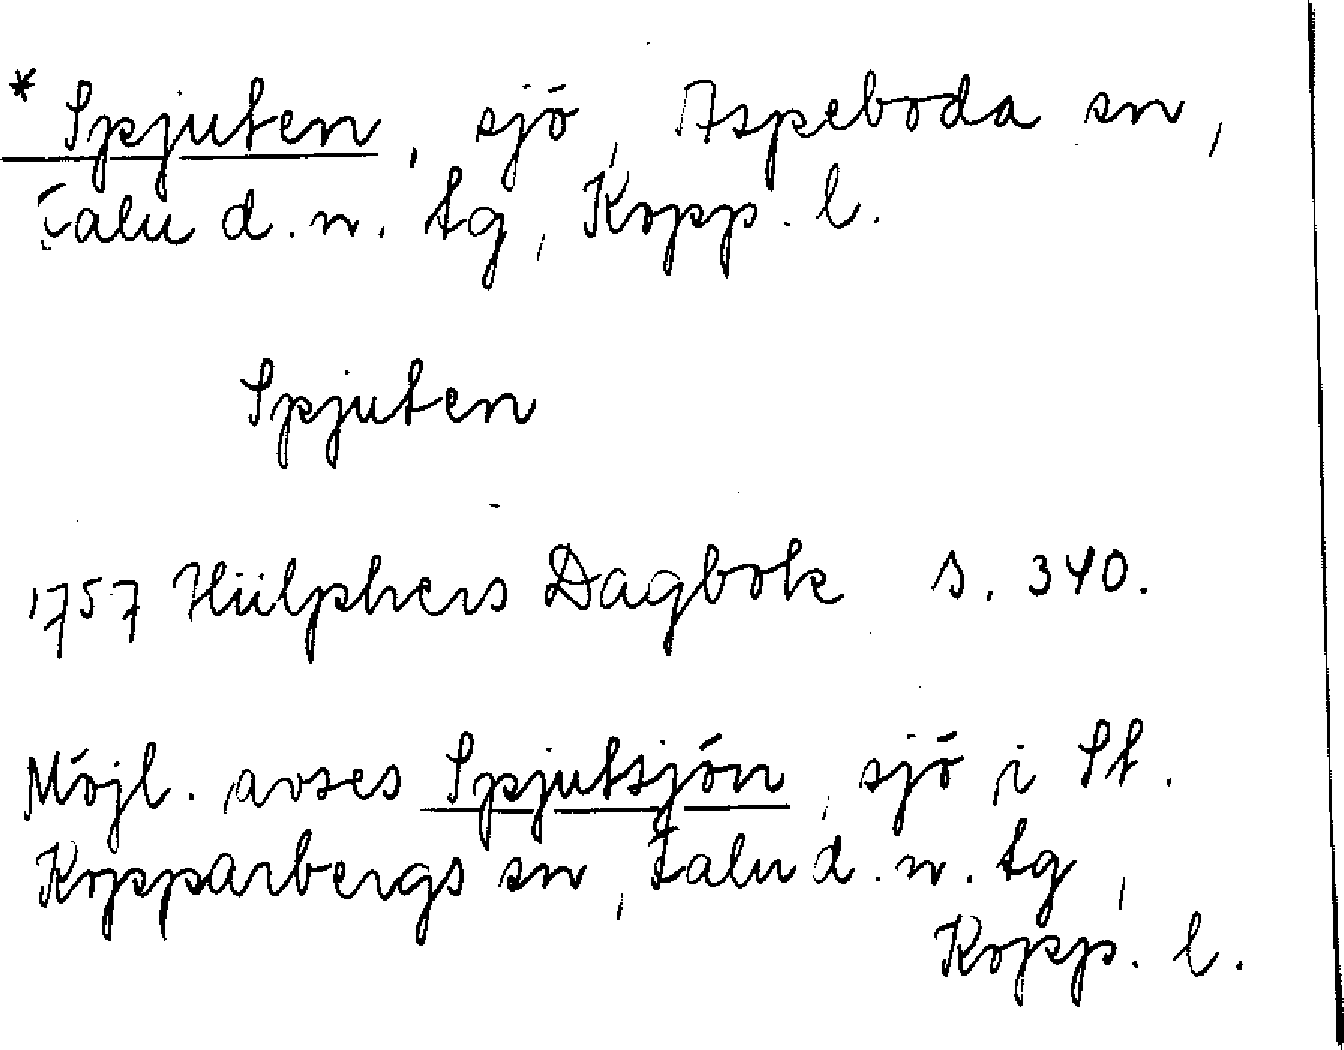 * Spjuten, sjö, Aspeboda sn,
Falu d. n. tg, Kopp. l.
Spjuten
1757 Hülphers Dagbok s. 340.
Möjl. avses Spjutsjön, sjö i St.
Kopparbergs sn, Falu d. n. tg,
Kopp. l.